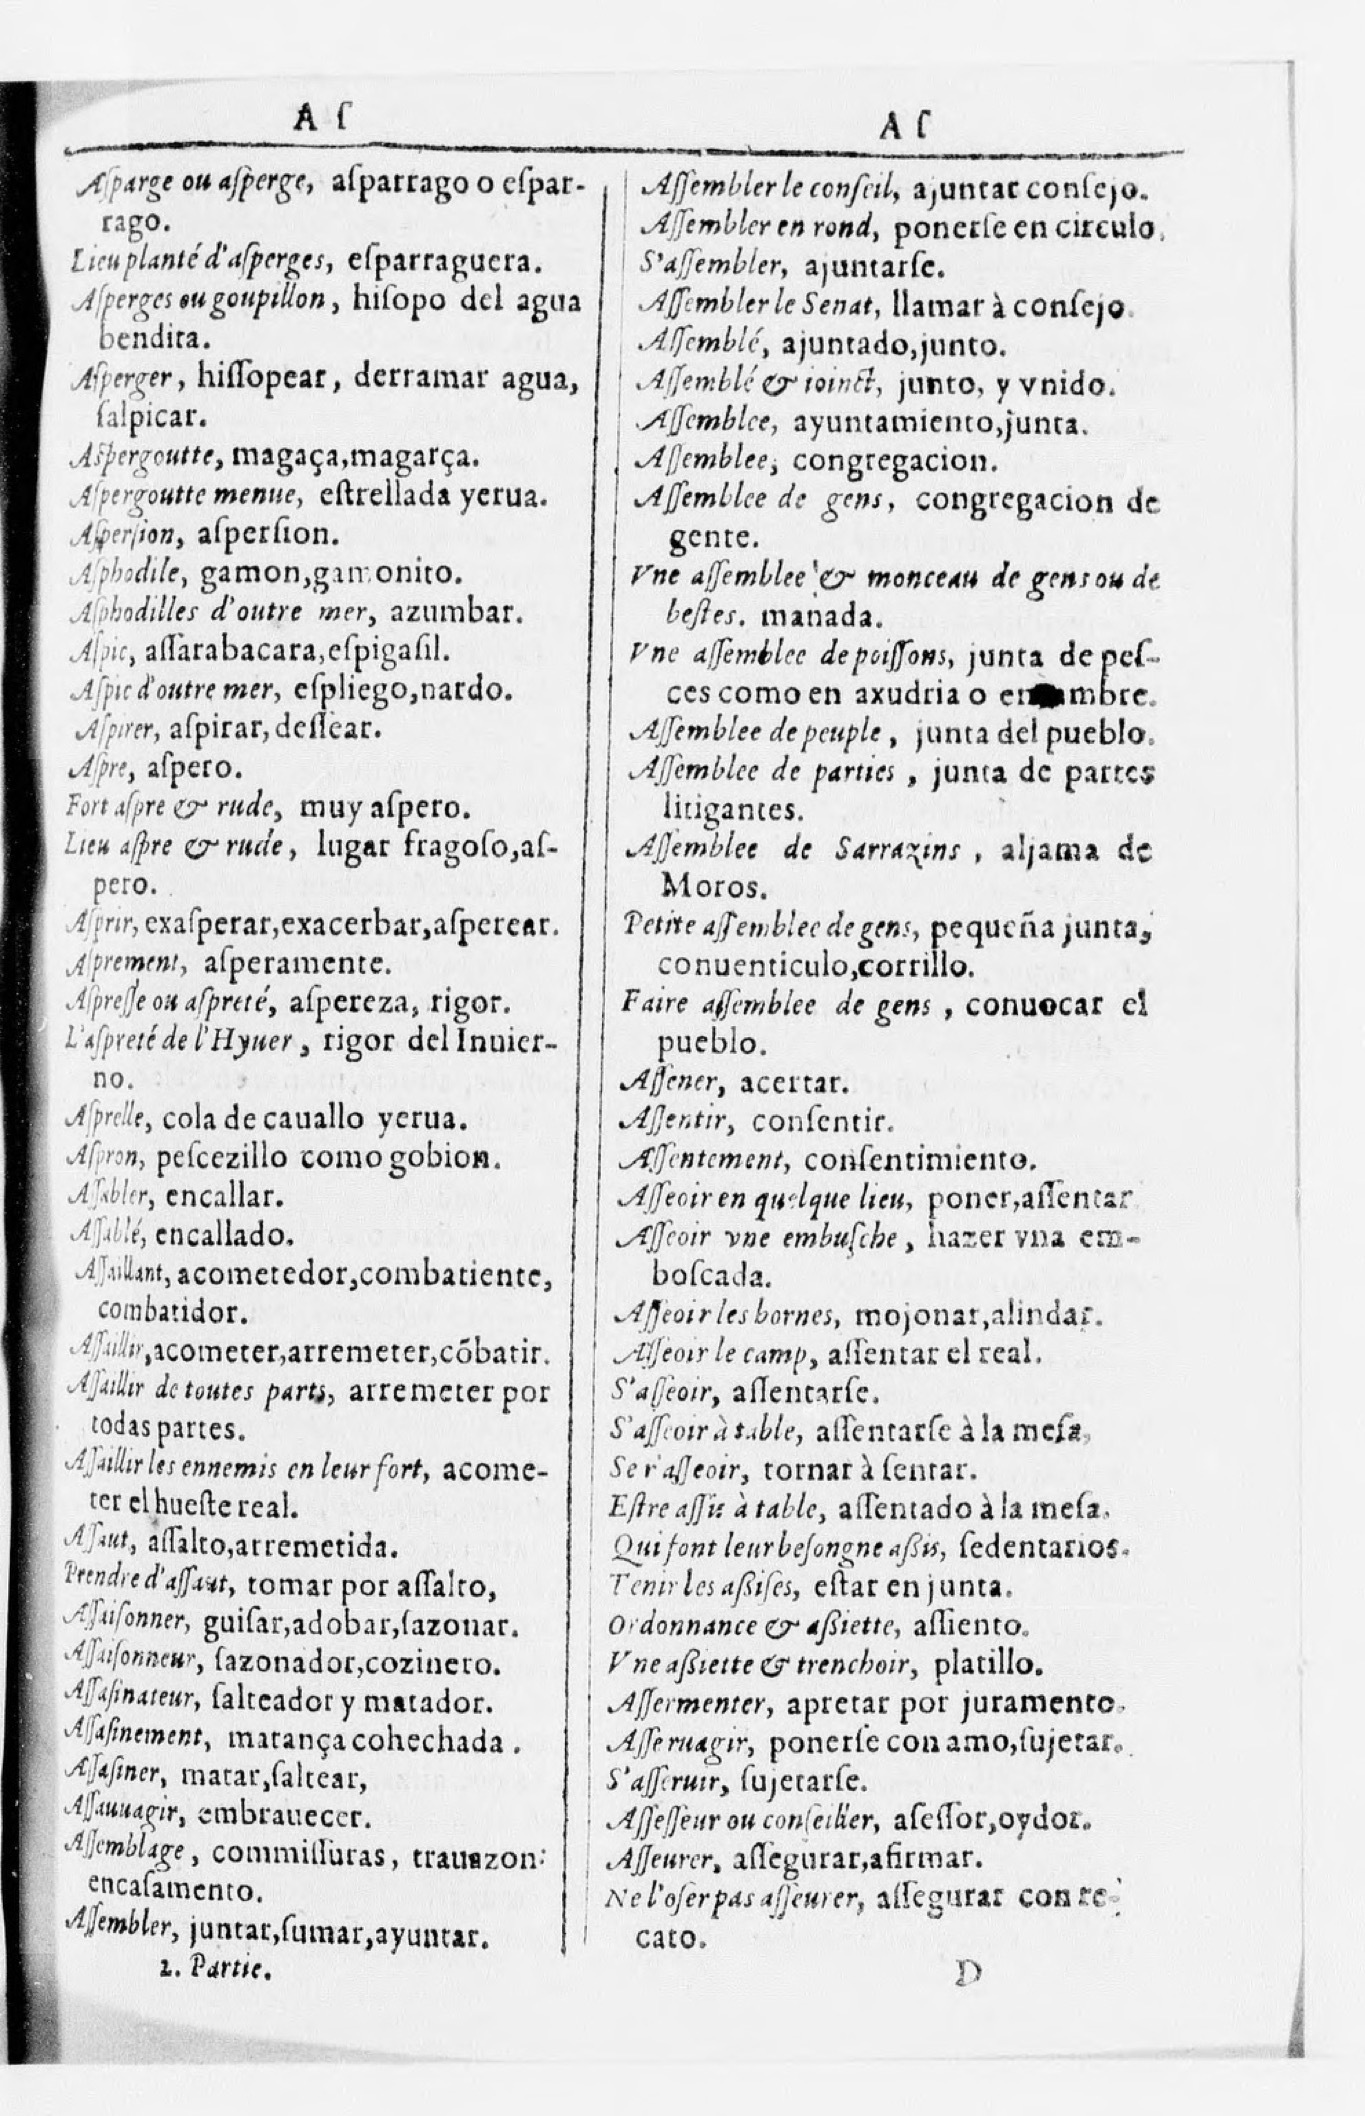 A ſ
Aſparge ou aſperge, aſparrago o eſpar-
rago.
Lieu planté d'aſperges, eſparraguera.
Aſperges ou goupillon, hiſopo del agua
bendita.
Aſperger, hiſſopear, derramar agua,
ſalpicar.
Aſpergoutte, magaça,magarça.
Aſpergoutte menue, eſtrellada yerua.
Aſperſion, aſperſion.
Aſphodile, gamon,gamonito.
Aſphodilles d'outre mer, azumbar.
Aſpic, aſſarabacara,eſpigaſil.
Aſpic d'outre mer, eſpliego,nardo.
Aſpirer, aſpirar, deſſear.
Aſpre, aſpero.
Fort aſpre & rude, muy aſpero.
Lieu aſpre & rude, lugar fragoſo,aſ-
pero.
Aſprir, exaſperar,exacerbar,aſperear.
Aſprement, aſperamente.
Aſpreſſe ou aſpreté, aſpereza, rigor.
L'aſpreté de l'Hyuer, rigor del Inuier-
no.
Aſprelle, cola de cauallo yerua.
Aſpron, peſcezillo como gobion.
Aſſabler, encallar.
Aſſablé, encallado.
Aſſaillant, acometedor,combatiente,
combatidor.
Aſſaillir,acometer,arremeter,cõbatir.
Aſſaillir de toutes parts, arremeter por
todas partes.
Aſſaillir les ennemis en leur fort, acome-
ter el hueſte real.
Aſſaut, aſſalto,arremetida.
Prendre d'aſſaut, tomar por aſſalto,
Aſſaiſonner, guiſar,adobar,ſazonar.
Aſſaiſonneur, ſazonador,cozinero.
Aſſaſinateur, ſalteador y matador.
Aſſaſinement, matança cohechada.
Aſſaſiner, matar,ſaltear,
Aſſauuagir, embrauecer.
Aſſemblage, commiſſuras, trauazon:
encaſamento.
Aſſembler, juntar,ſumar,ayuntar.
2. Partie.
A ſ
Aſſembler le conſeil, ajuntar conſejo.
Aſſembler en rond, ponerſe en circulo.
S'aſſembler, ajuntarſe.
Aſſembler le Senat, llamar à conſejo.
Aſſemblé, ajuntado,junto.
Aſſemblé & ioinct, junto, y vnido.
Aſſemblee, ayuntamiento,junta.
Aſſemblee, congregacion.
Aſſemblee de gens, congregacion de
gente.
Vne aſſemblee & monceau de gens ou de
beſtes. manada.
Vne aſſemblee de poiſſons, junta de peſ-
ces como en axudria o
Aſſemblee de peuple, junta del pueblo.
Aſſemblee de parties, junta de partes
litigantes.
Aſſemblee de Sarrazins, aljama de
Moros.
Petite aſſemblee de gens, pequeña junta,
conuenticulo,corrillo.
Faire aſſemblee de gens, conuocar el
pueblo.
Aſſener, acertar.
Aſſentir, conſentir.
Aſſentement, conſentimiento.
Aſſeoir en quelque lieu, poner,aſſentar.
Aſſeoir vne embuſche, hazer vna em-
boſcada.
Aſſeoir les bornes, mojonar,alindar.
Aſſeoir le camp, aſſentar el real.
S'aſſeoir, aſſentarſe.
S'aſſeoir à table, aſſentarſe à la meſa.
Se r'aſſeoir, tornar à ſentar.
Eſtre aſſis à table, aſſentado à la meſa.
Qui font leur beſongne aßis, ſedentarios.
Tenir les aßiſes, eſtar en junta.
Ordonnance & aßiette, aſſiento.
Vne aßiette & trenchoir, platillo.
Aſſermenter, apretar por juramento.
Aſſeruagir, ponerſe con amo,ſujetar.
S'aſſeruir, ſujetarſe.
Aſſeſſeur ou conſeiller, aſeſſor,oydor.
Aſſeurer, aſſegurar,afirmar.
Ne l'oſer pas aſſeurer, aſſegurar con re-
cato.
D